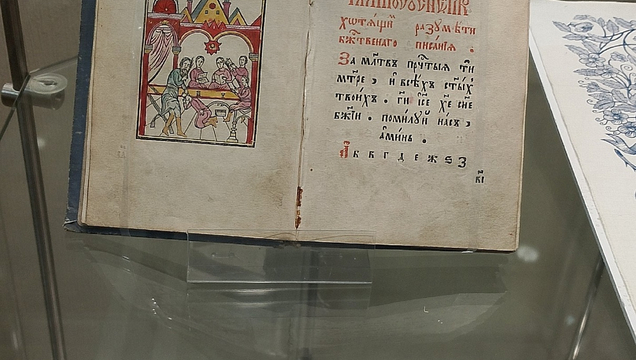 хотѧ́щиⷨ разꙋмѣ́ти
бжⷭ҇твенаго писанїѧ .
За мл҃твъ прⷱ҇тыѧ ти
мт҃ре , и҆ всѣⷯъ ст҃ыⷯ
твоиⷯъ . гⷭ҇и і҆с҃е х҃е сн҃е
бж҃їи . помилꙋй насъ ,
а҆минь .
А б в г д е ж ѕ з